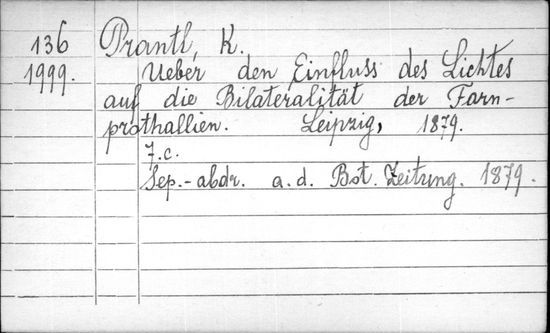 136 Prantl, K.
1999. Ueber den Einfluss des Lichtes
auf die Bilateralität der Farn-
prothallien. Leipzig, 1879.
7.c.
Sep.-abdr. a.d. Bot. Zeitung. 1879.